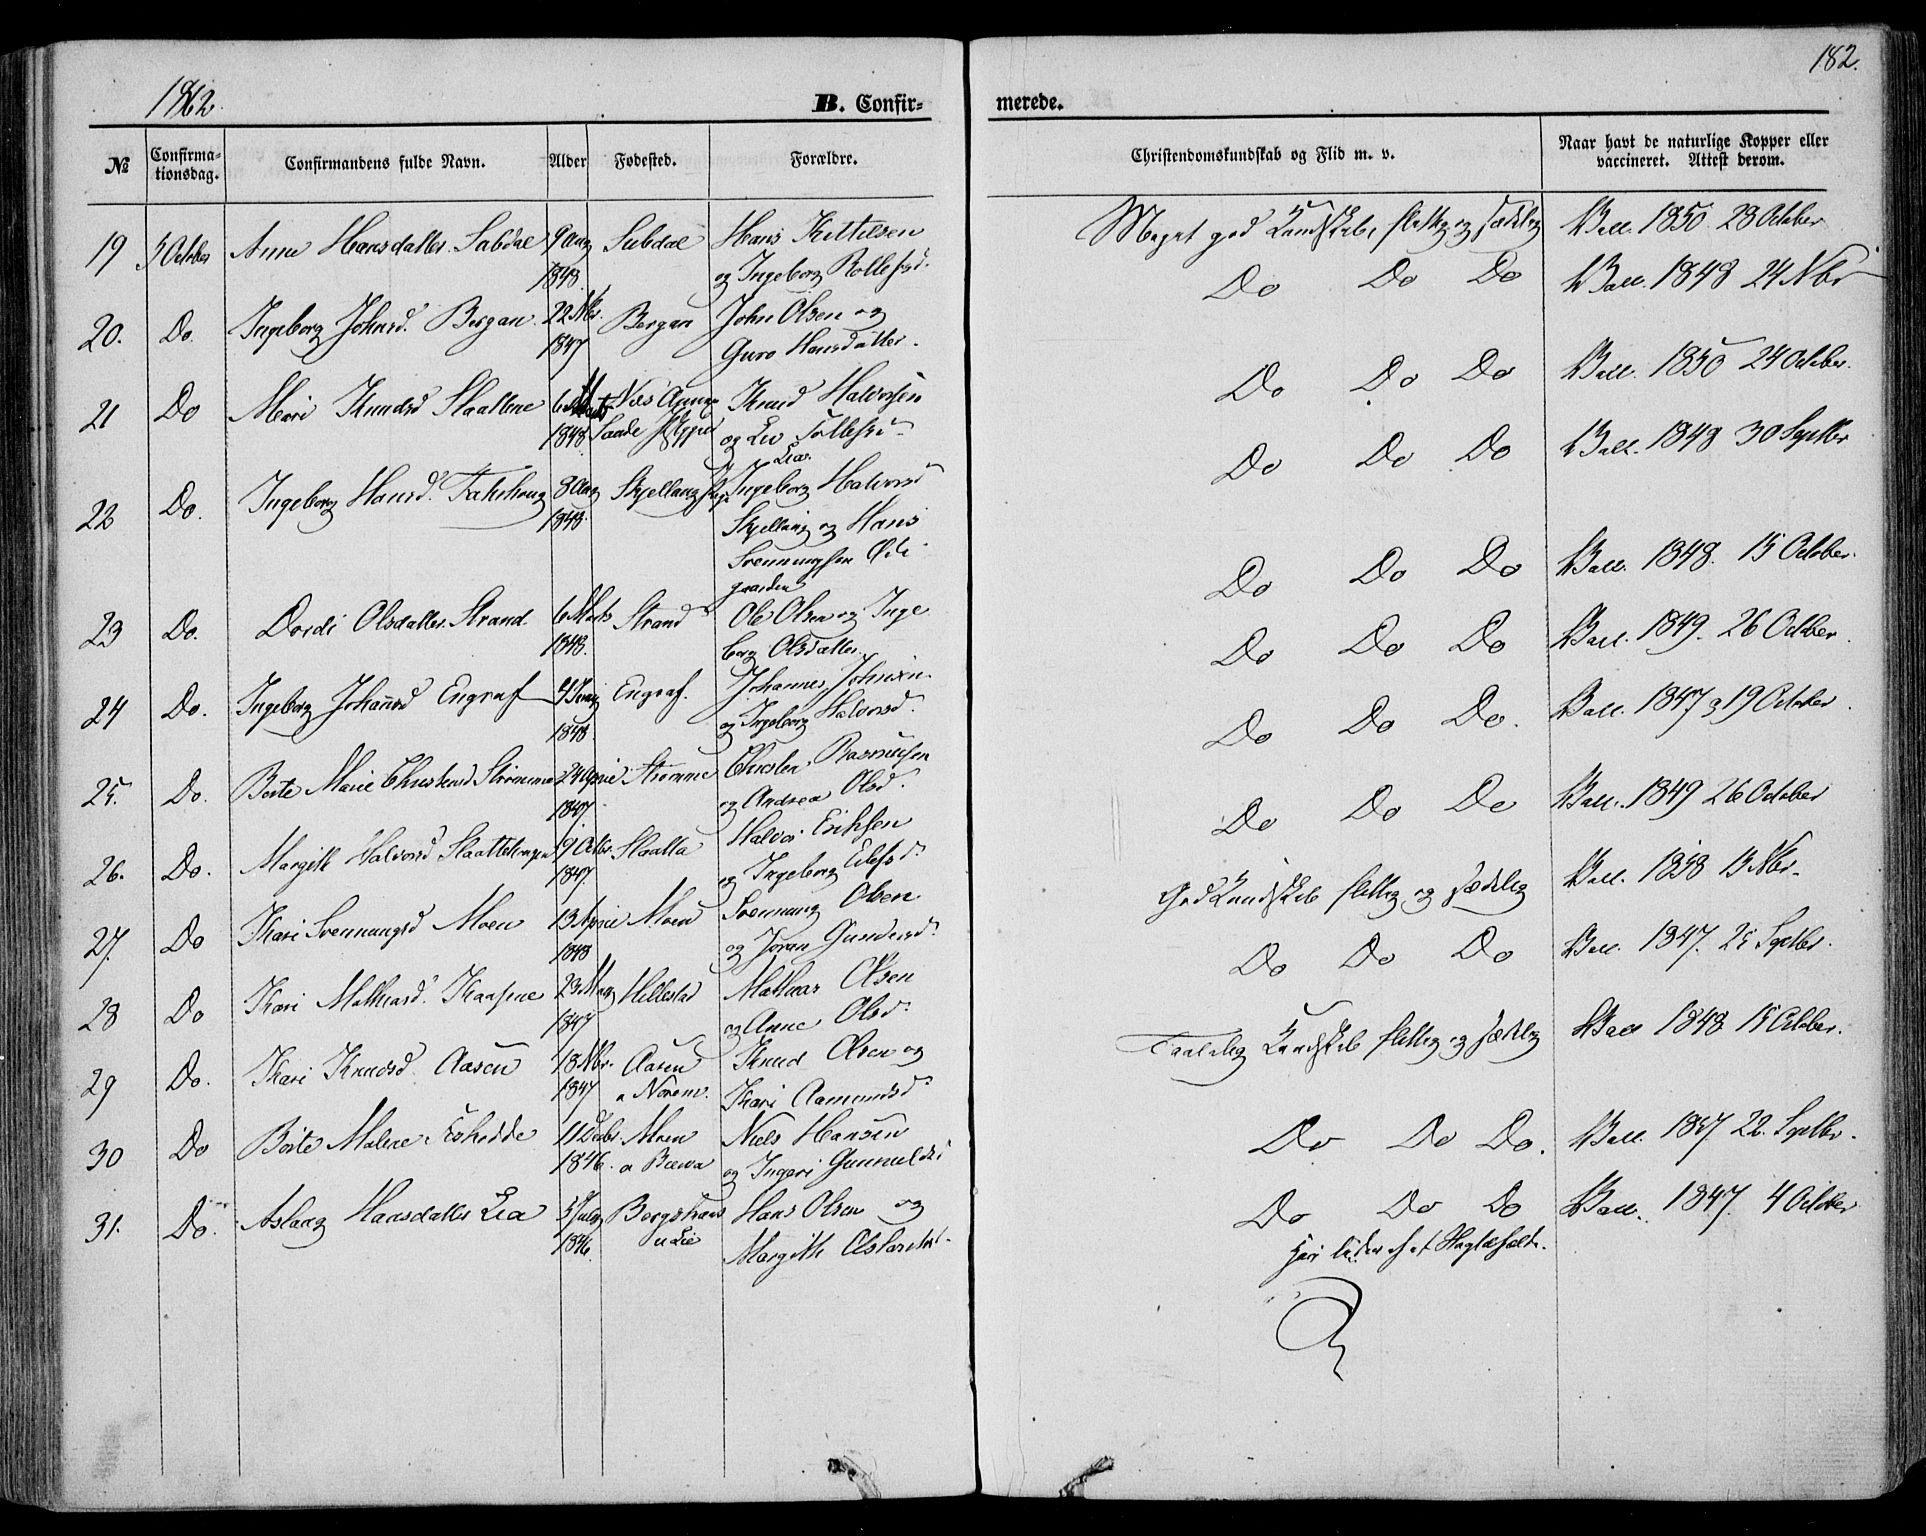 182.
1862.
B. Confir-
merede.
No
Confirma-
tionsdag.
Confirmandens fulde Navn.
Alder
Fødested.
Forældre.
Christendomskundskab og Flid m. v.
Naar havt de naturlige Kopper eller
vaccineret. Attest derom.
19 5 October Anne Hansdatter Subdal 9 Aug 1848. Subdal Hans Kittilsen
og Ingeborg Rollefsd.
Meget god Kundskab, flittig og sædelig Vacc. 1850 28 October
20. Do. Ingeborg Johnsd. Bergan. 22 Nbr. 1847 Bergan John Olsen og
Guro Hansdatter.
Do Do Do Vacc. 1848 24 Nbr
21 Do Mari Knudsd Slaattene 6 Marts 1848 Næs Knud Halvorsen
Saude og Liv Tollefsd.
Do Do Do Vacc. 1850 24 October.
22 Do. Ingeborg Hansd. 8 Aug 1848. Ingeborg Halvorsd
og Hans
Svenningsen
gaarden
Do Do Do Vacc. 1848 30 Septbr
23 Do. Dordi Olsdatter Strand. 6 Marts 1848. Strand Ole Olsen og Inge
borg Olsdatter.
Do Do Do Vacc. 1848. 15 October.
24 Do. Ingeborg Johannsd Engraf 4 1848 Engraf. Johannes Johnsen.
og Ingeborg Halvorsd.
Do Do Do Vacc. 1849. 26 October.
25. Do. Berte Marie Christensd Strømme 24 April 1847. Strømme Christen Rasmusen
og Andrea Olsd.
Do Do Do. Vacc. 1847 19 October.
26. Do. Margith Halvorsd 19 Octbr. 1847. Slaatta Halvor Eriksen
og Ingeborg
Do Do Do Vacc. 1849 26 October
27. Do Kari Svennungsd Moen 13 April 1848 Moen Svennung Olsen
og Jøran Gundersd.
God Kundskab flittig og sædelig Vacc. 1858 13 Nbr.
28 Do Kari Mathiasd. Kaasene 23 1847 Hellestad Mathias Olsen
og Anne Olsd.
Do Do Do Vacc. 1847. 25 Septbr.
29 Do. Kari Knudsd Aasen 18 Nbr. 1847 Aasen Knud Olsen og
Kari Aamundsd.
Taalelig Kundskab flittig og sædelig Vacc 1848 15 October.
30 Do Berte Malene 11 Decbr 1846. Moen Niels Hansen
og Ingeri
Do Do Do. Vacc. 22. Septbr.
31. Do. Aslaug Hansdatter Lia 5 July 1846. Hans Olsen og
u Lie Margith
Do Do Do Vacc. 1847. 4 October